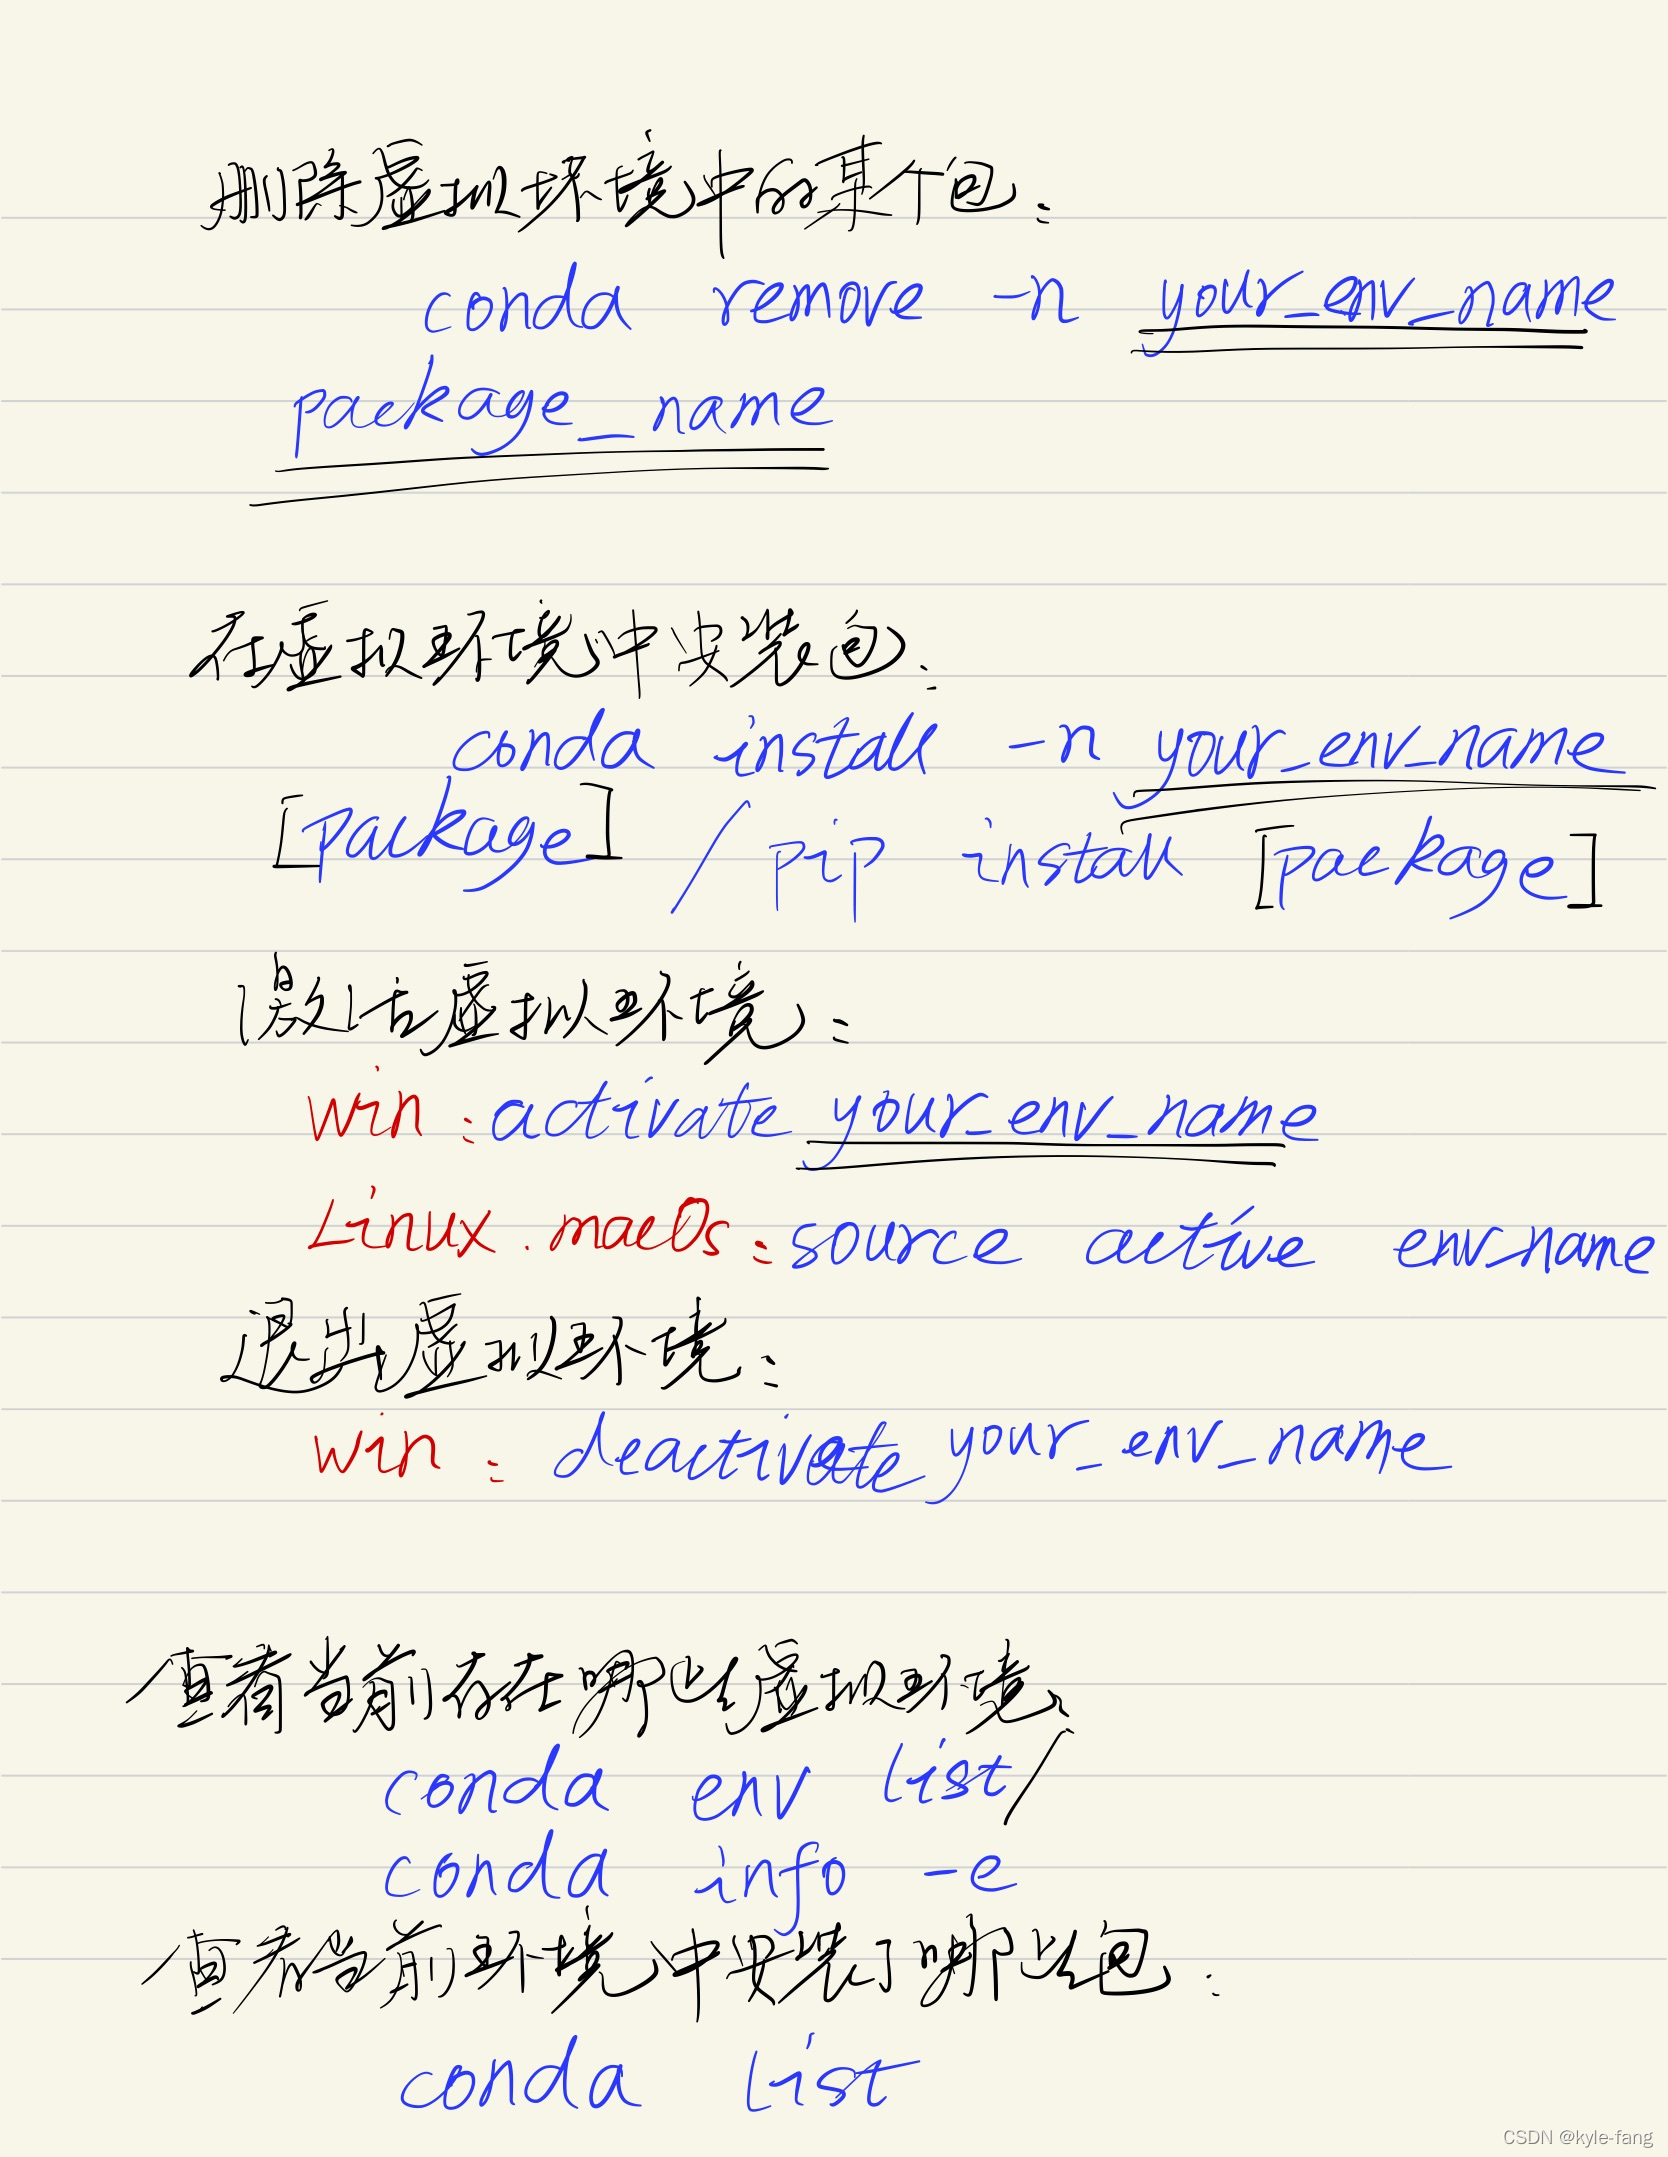 删除虚拟环境中的某个包：
conda remove -n your_env_name
package_name
在虚拟环境中安装包：
conda install -n your_env_name
[package] / pip install [package]
激活虚拟环境：
win：activate your_env_name
Linux. macOs：source active env_name
退出虚拟环境：
win：deactivate your_env_name
查看当前存在哪些虚拟环境、
conda env list/
conda info -e
查看当前环境中安装了哪些包：
conda list
CSDN @kyle-fang